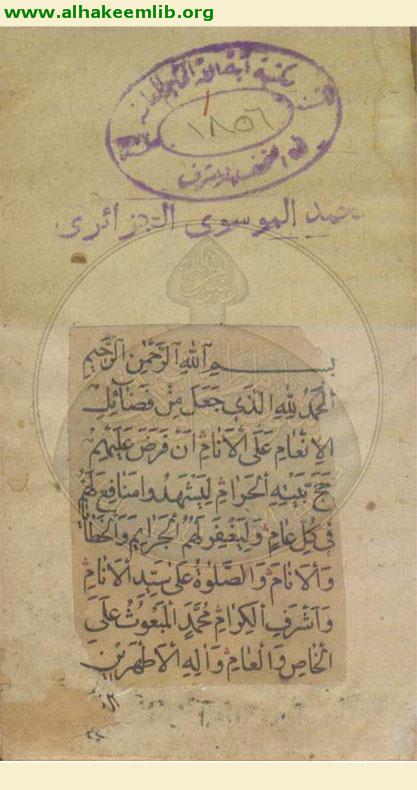 www.alhakeemlib.org
مكتبة آية الله الحكيم العامة
١٨٥٦
النجف الاشرف
محمد الموسوي الجزائري
بسم الله الرحمن الرحيم
الحمد لله الذي جعل من فضائل
الانعام على الانام ان فرض عليهم
حج بيته الحرام ليشهدوا منافع لهم
في كل عام وليغفر لهم الجرايم والخطا
والاثام والصلوة على سيد الانام
واشرف الكرام محمد المبعوث على
الخاص والعام واله الاطهرين